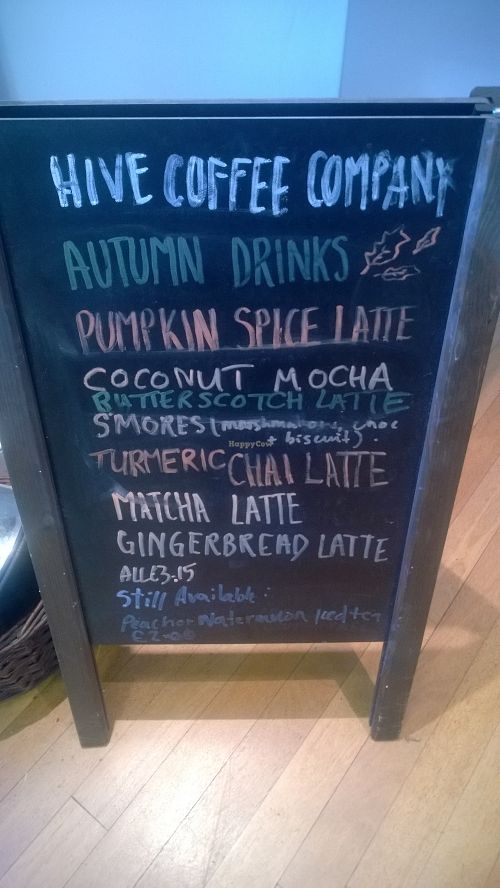 HIVE COFFEE COMPANY
AUTUMN DRINKS
PUMPKIN SPICE LATTE
COCONUT MOCHA
BUTTERSCOTCH LATTE
S'MORES (marshmallow, choc
+ biscuit).
HappyCow
TURMERIC CHAI LATTE
MATCHA LATTE
GINGERBREAD LATTE
ALL £3.15
Still Available:
Peach or Watermelon Iced tea